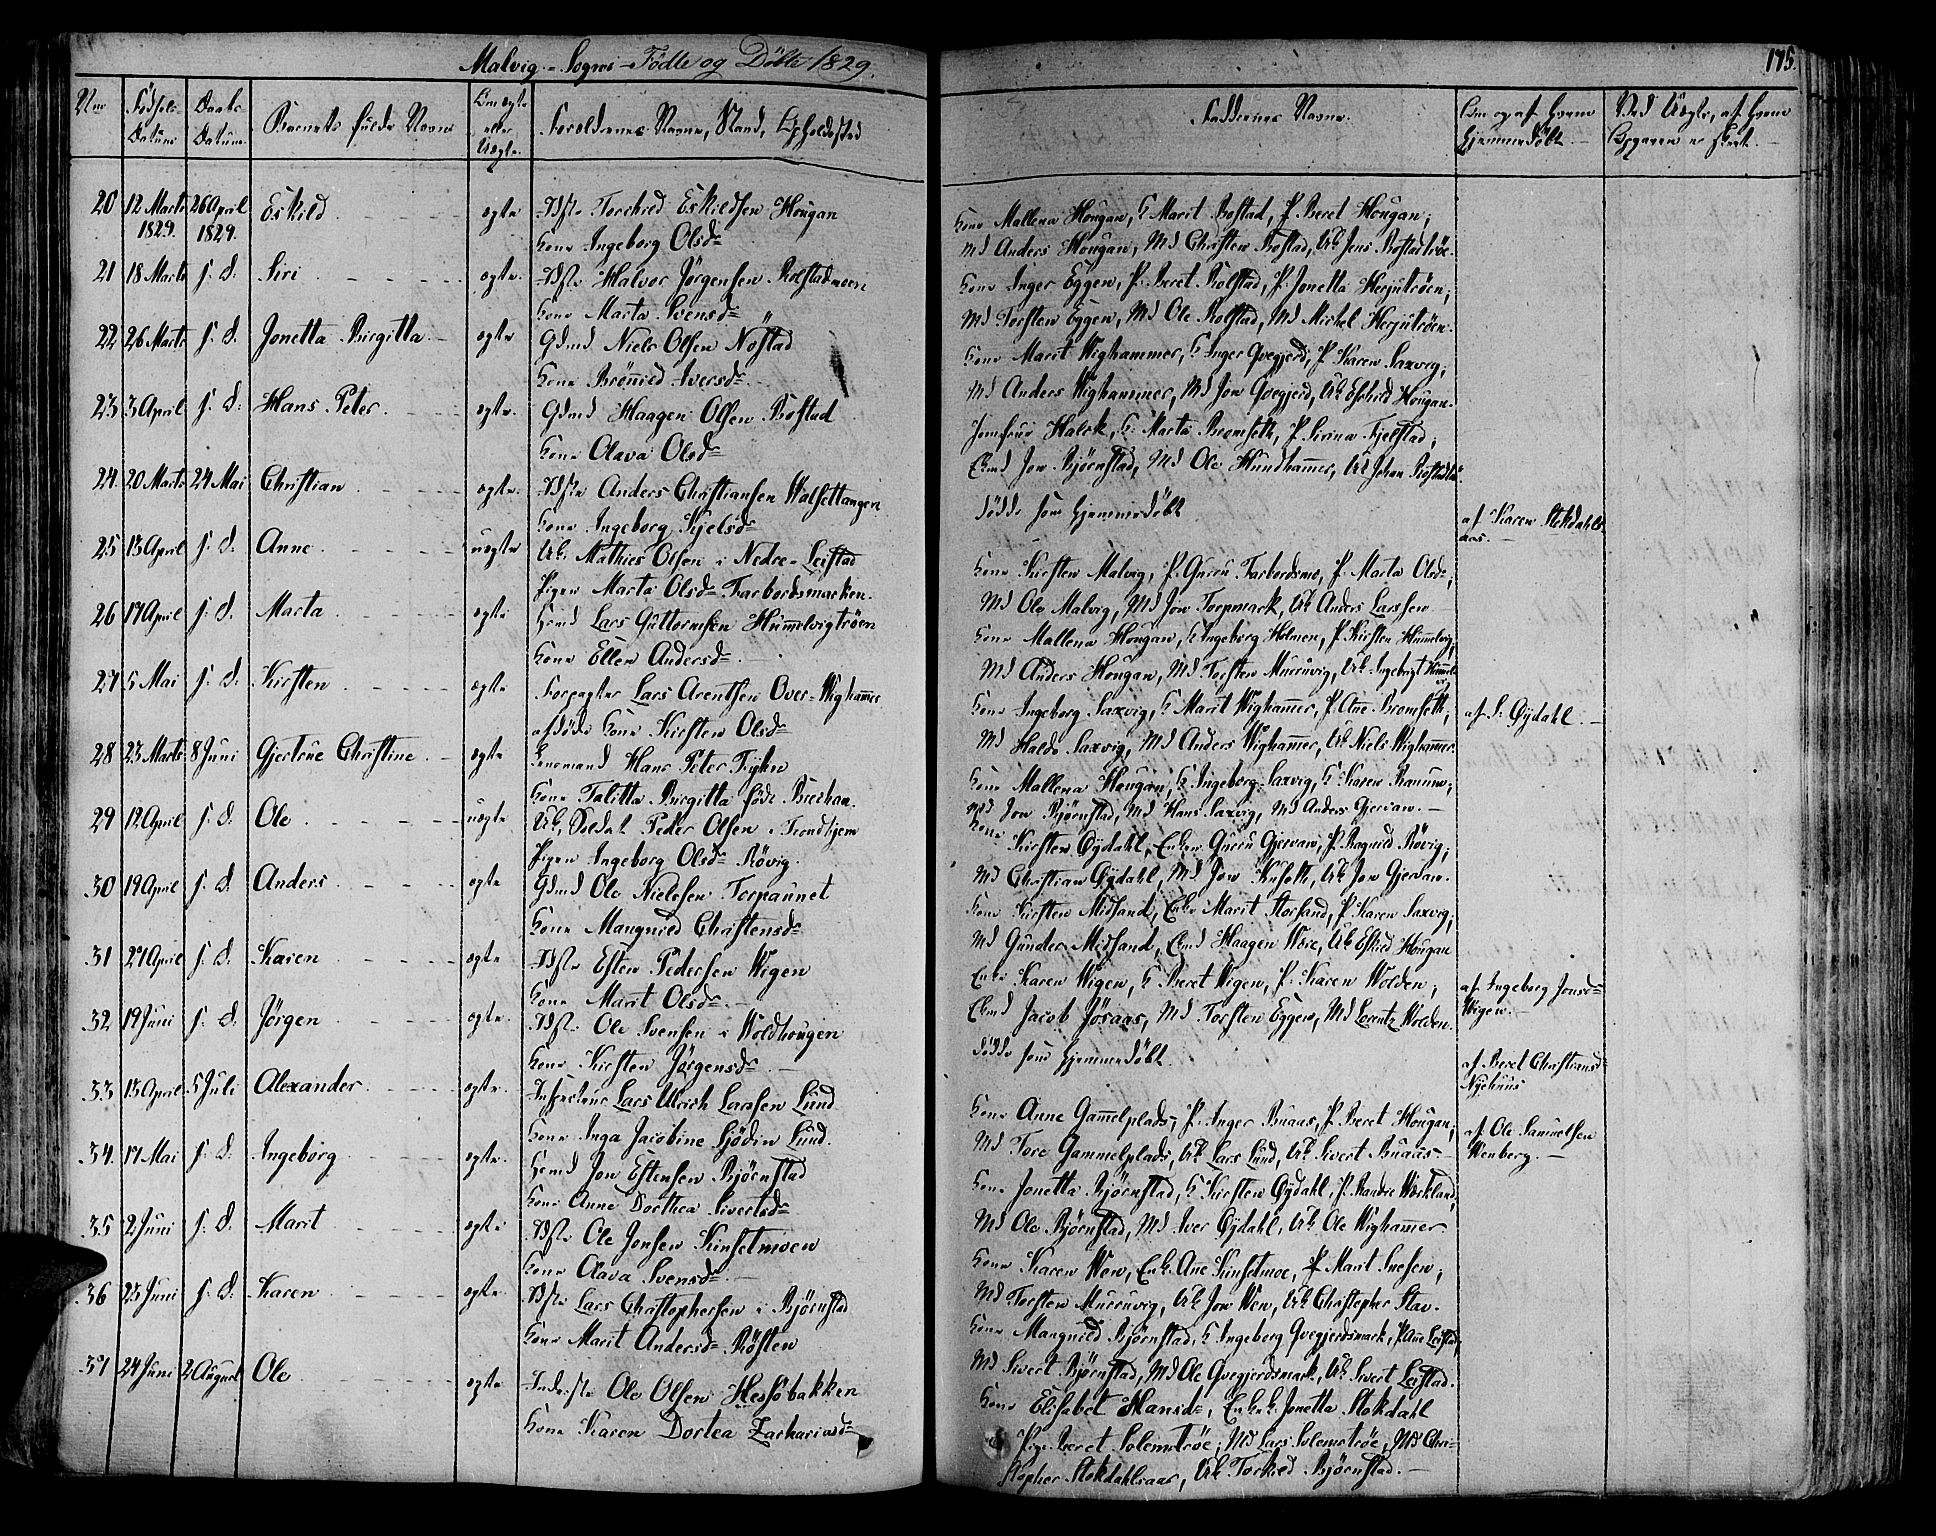 Malvig-Sogns-Fødte og Døbte 1829.
175.
Nnr
Fødsels-Datum
Daabs-Datum
Barnets fulde Navn
Om ægte eller Uægte.
Forældrenes Navne, Stand, Opholdssted
Faddernes Navne.
Om og af hvem hjemmedøbt.
20 12 Marts 1829. 26 April 1829. Eskild ægte Huusm Torchild Eskildsen Hougan
Kone Ingeborg Olsdr
Kone Mallena Hougan, K Marit Rostad, P. Beret Hougan;
Md Anders Hougan, Md Christen Rostad, Uk Jens Rostadtrøe.
21 18 Marts s. d. Siri ægte. Halvor Jørgensen Rolstadmoen
Kone Marta Svensdr
Kone Inger Eggen, P. Beret Rolstad, P. Jonetta Herjutrøen;
Md Torsten Eggen, Md Ole Rolstad, Md Michel Herjutrøen.
22 26 Marts s. d. Jonetta Birgitta ægte Gdmd Niels Olsen Nøstad
Kone Brønild Iversdr
Kone Marit Wighammer, K Inger Qvegjerd, P Karen Saxvig;
Md Anders Wighammer, Md Jon Qvegjerd, Uk Eskild Hougan.
23 3 April s. d. Hans Peter ægte. Gdmd Haagen Olsen Rostad
Kone Olava Olsdr
Jomfrue Halck, K Marta Bromseth, P. Sirina Fjelstad;
Jon Bjørnstad, Md Ole Hundhammer, Uk Johan
24 20 Marts 24 Mai Christian ægte. Anders Christiansen Malsettangen
Kone Ingeborg Kjelsdr
Døde som hjemmedøbt
af Karen Stokdahls
aas.
25 13 April s. d. Anne uægte Uk. Mathies Olsen i Nedre-Leistad
Pigen Marta Olsdr Farbordsmarken.
Kone Kirsten Malvig, P. Guru Farbordsmo, P. Marta Olsdr;
Md Ole Malvig, Md Jon Torpmark, Uk Anders Larssen
26 17 April s. d. Marta ægte Lars Guttormsen Hummelvigtrøen
Kone Ellen Andersdr
Kone Mallena Hougan, K Ingeborg Holmen, P. Kirsten Hummelvig,
Md Anders Hougan, Md Torsten Muruvig, Uk Ingebrigt Hummelvig
27 5 Mai s. d. Kirsten ægte Forpagter Lars Arentsen Over-Wighammer
afdøde Kone Kirsten Olsdr
Kone Ingeborg Saxvig, K Marit Wighammer, P. Ane Bromseth,
Md Haldo Saxvig, Md Anders Wighammer, Uk Niels Wighammer.
af S. Øydahl
28 23 Marts 8 Juni Gjertrue Christine ægte Hans Peter
Kone Talitta Birgitta føde
Kone Mallena Hougan, K Ingeborg Saxvig, K Karen
Md Jon Bjørnstad, Md Hans Saxvig, Md Anders Gjervan.
29 12 April s. d. Ole uægte Uk, Soldat Peder Olsen i Trondhjem
Pigen Ingeborg Olsdr Røvig.
Kone Kirsten Øydahl, Enken Guru Gjervan, P. Ragnild Røvig;
Md Christian Øydahl, Md Jon, Uk Jon Gjervan.
30 19 April s. d. Anders ægte Gdmd Ole Nielsen Torpaunet
Kone Mangnild Christensdr
Kone Kirsten Midsand, Enke Marit Storsand, P. Karen Saxvig;
Md Gunder Midsand, Haagen, Uk Eskild Hougan
31 27 April s. d. Karen ægte Esten Pedersen Wigen
Kone Marit Olsdr
Enke Karen Wigen, K Beret Wigen, P. Karen Wolden;
Jacob Jøsaas, Md Torsten Eggen, Md Lorentz Wolden.
af Ingeborg Jonsdr
Wigen.
32 19 Juni s. d. Jørgen ægte Ole Svensen i Woldhougen
Kone Kirsten Jørgensdr
Døde som hjemmedøbt.
af Beret Christiansdr
Nyehuus
33 13 April 5 Juli Alexander ægte. Lars Ulrich Larssen Lund
Kone Inga Jacobine Sjødin Lund.
Kone Anne Gammelplads, P. Inger Buaas, P. Beret Hougan;
Md Tore Gammelplads, Uk Lars Lund, Uk Sivert Buaas
af Ole Samuelsen
Wenberg.
34 17 Mai s. d. Ingeborg ægte. Jon Estensen Bjørnstad
Kone Anne Dorthea Sivertsdr
Kone Jonetta Bjørnstad, K Kirsten Øydahl, P. Randie Workland,
Md Ole Bjørnstad, Md Iver Øydahl, Uk Ole Wighammer.
35 2 Juni s. d. Marit ægte Ole Jonsen Kunsetmoen
Kone Olava Svensdr.
Kone Karen Wen, Enk. Ane Kunsetmoe, P. Marit Snesen;
Md Torsten Muruvig, Uk Jon Wen, Uk Christopher Stav.
36 23 Juni s. d. Karen ægte. Lars Christophersen i Bjørnstad
Kone Marit Andersdr Røsten
Kone Mangnild Bjørnstad, K Ingeborg Qvegjerdsmark, P. Ane Leistad,
Md Sivert Bjørnstad, Md Ole Qvegjerdsmark, Uk Sivert Leistad.
37 24 Juni 2 August Ole ægte Ole Olsen Hessøbakken
Kone Karen Dortea Zachariasdr
Kone Elisabet Hansdr, Enke Jonetta Stokdahl
Pige Beret Solemstrøe; Md Lars Solemstrøe, Md Chri-
stopher Stokdahlsaas, Uk Torkild Bjørnstad.